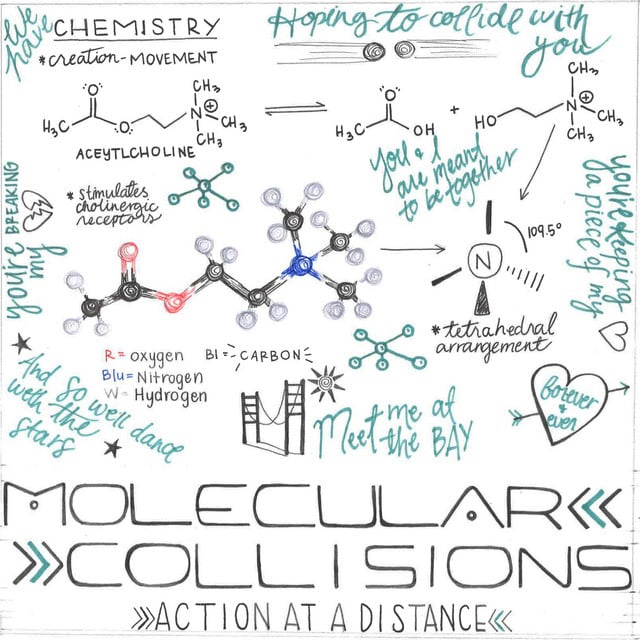 We have CHEMISTRY
*creation-MOVEMENT
Hoping to collide with you
O
H₃C
O
N
⊕
CH₃
CH₃
CH₃
ACEYTLCHOLINE
O
H₃C
OH
+
HO
N
⊕
CH₃
CH₃
CH₃
you & I
are meant
to be together
you're BREAKING
my
*stimulates
cholinergic
receptors
109.5°
N
you're keeping
a piece of my
*tetrahedral
arrangement
R= oxygen
Bl= CARBON
Blu= Nitrogen
W= Hydrogen
And so we'll dance
with the
stars
Meet me at
the BAY
forever
+
even
MOLECULAR<<
>>COLLISIONS
>>>ACTION AT A DISTANCE<<<